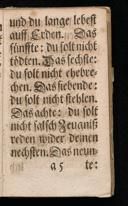 und du lange lebest
auff Erden. Das
fünffte: du solt nicht
tödten. Das sechste:
du solt nicht ehebre-
chen. Das siebende:
du solt nicht stehlen.
Das achte: du solt
nicht falsch Zeugniß
reden wider deinen
nechsten. Das neun-
a 5 te: